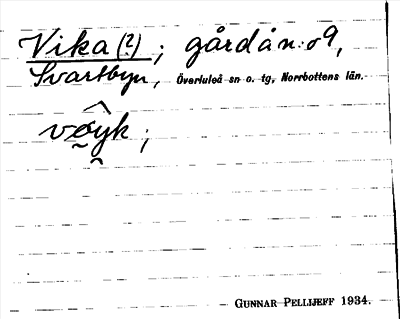 Vika (?) ; gård å n:o 9,
Svartbyn, Överluleå sn o. tg, Norrbottens län.
vo͡yk ;
GUNNAR PELLIJEFF 1934.